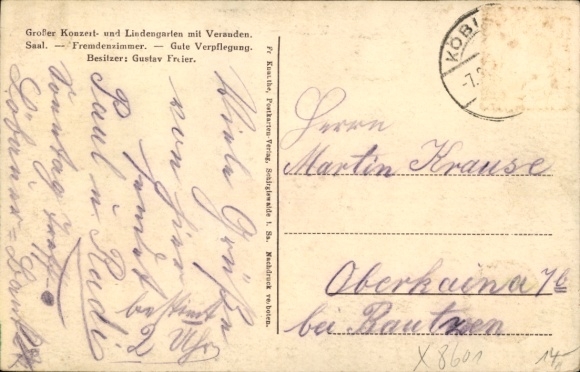 Großer Konzert- und Lindengarten mit Veranden.
Saal. — Fremdenzimmer. — Gute Verpflegung.
Besitzer: Gustav Freier.
Viele Grüße
von hier
sendet
Paul u. Rudi
bestimmt
2 Uhr
Sonntag
Löbauer-
Fr Kunathe, Postkarten-Verlag, Schirgiswalde i. Sa. Nachdruck verboten.
KÖBL
-7.
Herrn
Martin Krause
Oberkaina 7b
bei Bautzen
X 8601
14,-